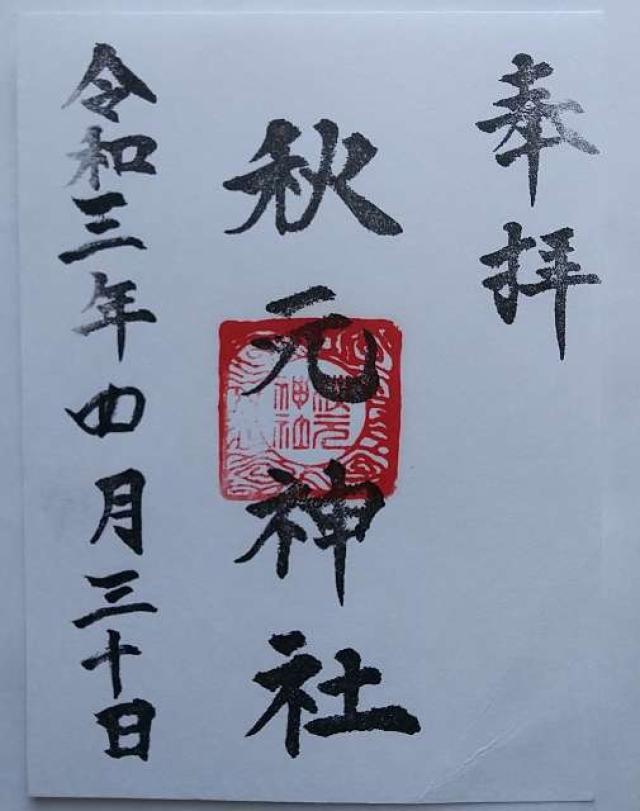 奉拝
秋元神社
令和三年四月三十日